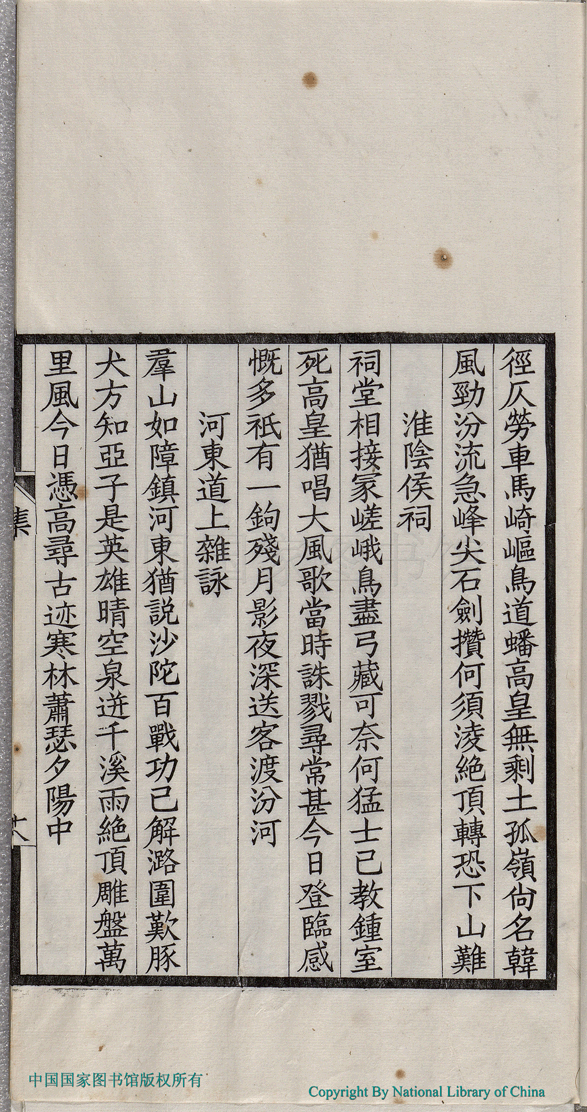 徑仄勞車馬崎嶇鳥道蟠高皇無剩土孤嶺尙名韓
風勁汾流急峰尖石劍攢何須淩絶頂轉恐下山難
淮陰侯祠
祠堂相接冢嵯峨鳥盡弓藏可奈何猛士已教鍾室
死高皇猶唱大風歌當時誅戮尋常甚今日登臨感
慨多祇有一鉤殘月影夜深送客渡汾河
河東道上雜詠
羣山如障鎮河東猶説沙陀百戰功已解潞圍歎豚
犬方知亞子是英雄晴空泉迸千溪雨絶頂雕盤萬
里風今日憑高尋古迹寒林蕭瑟夕陽中
集
中国国家图书馆版权所有
Copyright By National Library of China